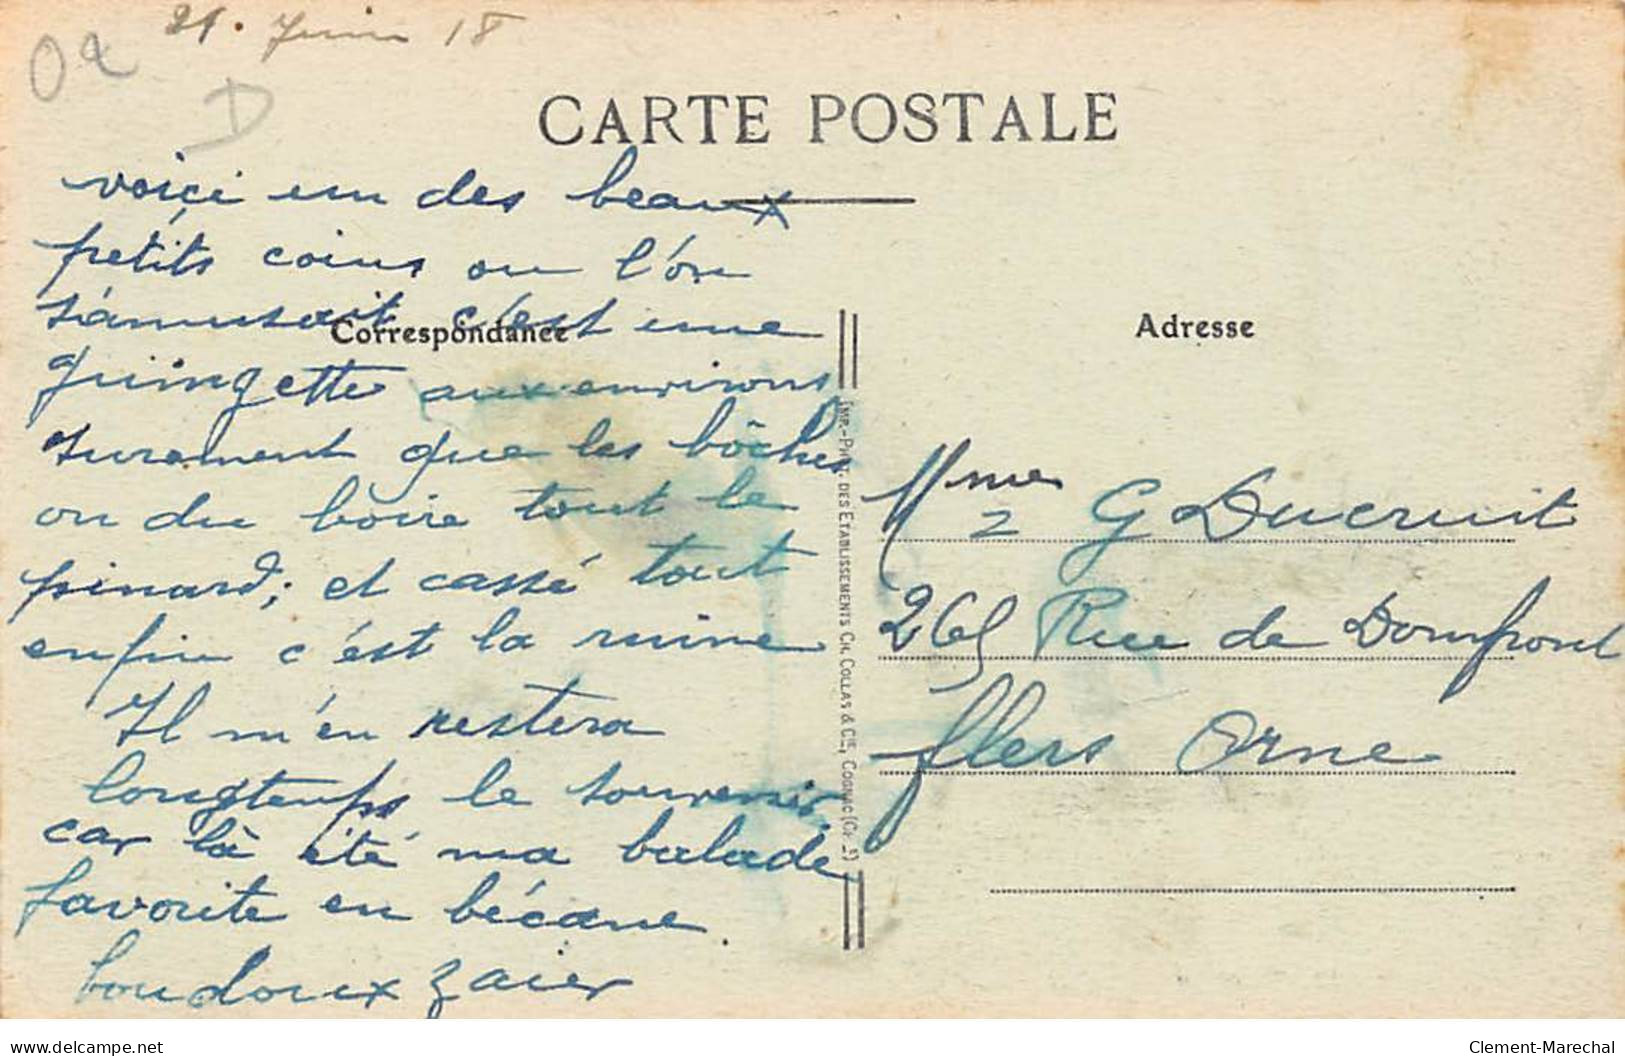 21. Juin 18
D
CARTE POSTALE
voiçi un des beaux
petits coins ou l'on
s'amusait c'est une
Correspondance
guingette aux environs
surement que les bôches
on du boire tout le
pinard; et cassé tout
enfin c'est la ruine
Il m'en restera
longtemps le souvenir
car là été ma balade
favorite en bécane.
bon doux
Imp.-Phot. des Etablissements Ch. Collas & Cie, Cognac
Adresse
Mme G Ducruit
265 Rue de Domfront
flers Orne
delcampe.net
Clement-Marechal